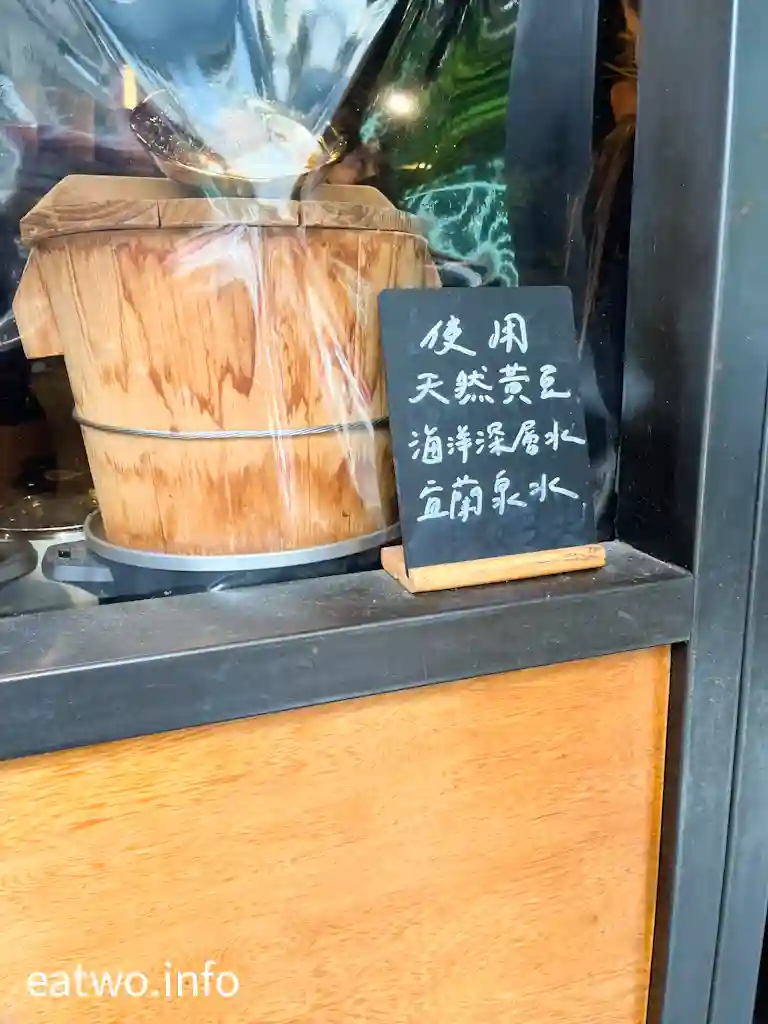 使用
天然黃豆
海洋深層水
宜蘭泉水
eatwo.info